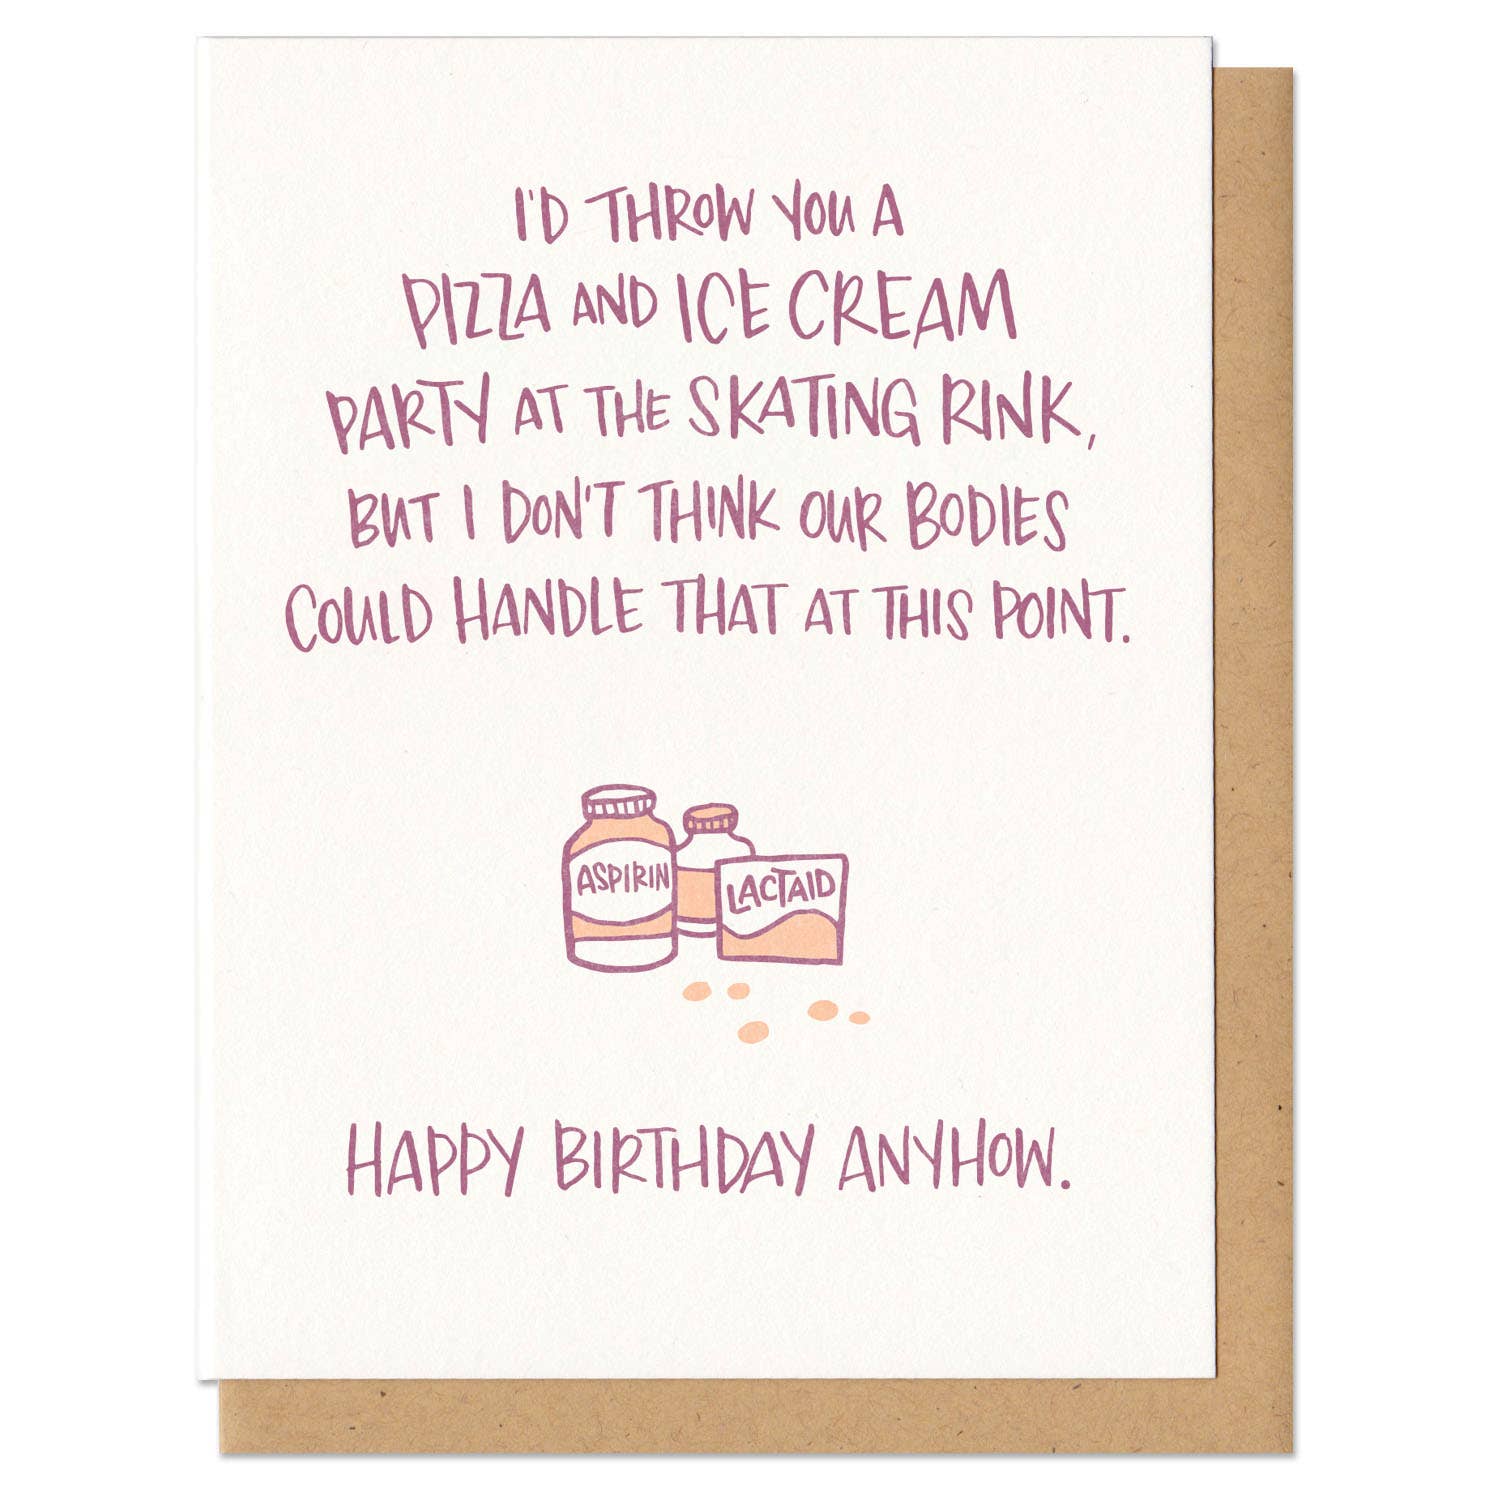 I'D THROW YOU A
PIZZA AND ICE CREAM
PARTY AT THE SKATING RINK,
BUT I DON'T THINK OUR BODIES
COULD HANDLE THAT AT THIS POINT.
ASPIRIN
LACTAID
HAPPY BIRTHDAY ANYHOW.